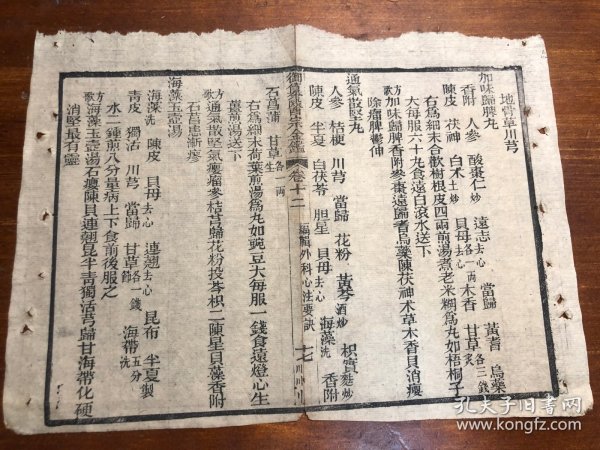 地骨草川芎
加味歸脾丸
香附 人參 酸棗仁炒 遠志去心 當歸 黃耆 烏藥
陳皮 茯神 白术土炒 貝母去心各一兩 木香 甘草炙各三錢
右爲細末合歡樹根皮四兩煎湯煮老米糊爲丸如梧桐子
大每服六十丸食遠白滾水送下
方歌加味歸脾香附參棗遠歸耆烏藥陳茯神术草木香貝消癭
除瘤脾鬱伸
通氣散堅丸
人參 桔梗 川芎 當歸 花粉 黃芩酒炒 枳實麩炒
陳皮 半夏製 白茯苓 胆星 貝母去心 海藻洗 香附
御纂醫宗金鑑 卷十二 編輯外科心法要訣 十七
石菖蒲 甘草生各一兩
右爲細末荷葉煎湯爲丸如豌豆大每服一錢食遠燈心生
薑煎湯送下
方歌通氣散堅氣癭瘤參桔芎歸花粉投芩枳二陳星貝藻香附
石菖患漸瘳
海藻玉壺湯
海藻洗 陳皮 貝母去心 連翹去心 昆布 半夏製
青皮 獨活 川芎 當歸 甘草節各一錢 海帶洗五分
水二鍾煎八分量病上下食前後服之
方歌海藻玉壺湯石癭陳貝連翹昆半青獨活芎歸甘海帶化硬
消堅最有靈
孔夫子旧书网
www.kongfz.com